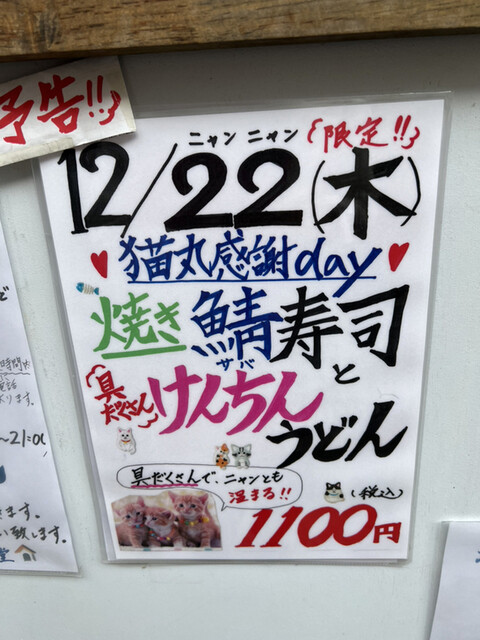 予告!!
ニャン ニャン
限定!!
12/22(木)
猫丸感謝day
焼き鯖寿司と
サバ
具だくさん
けんちん
うどん
具だくさんで、ニャンとも
温まる!!
(税込)
1100円
~21:00
ます。
い致します。
堂